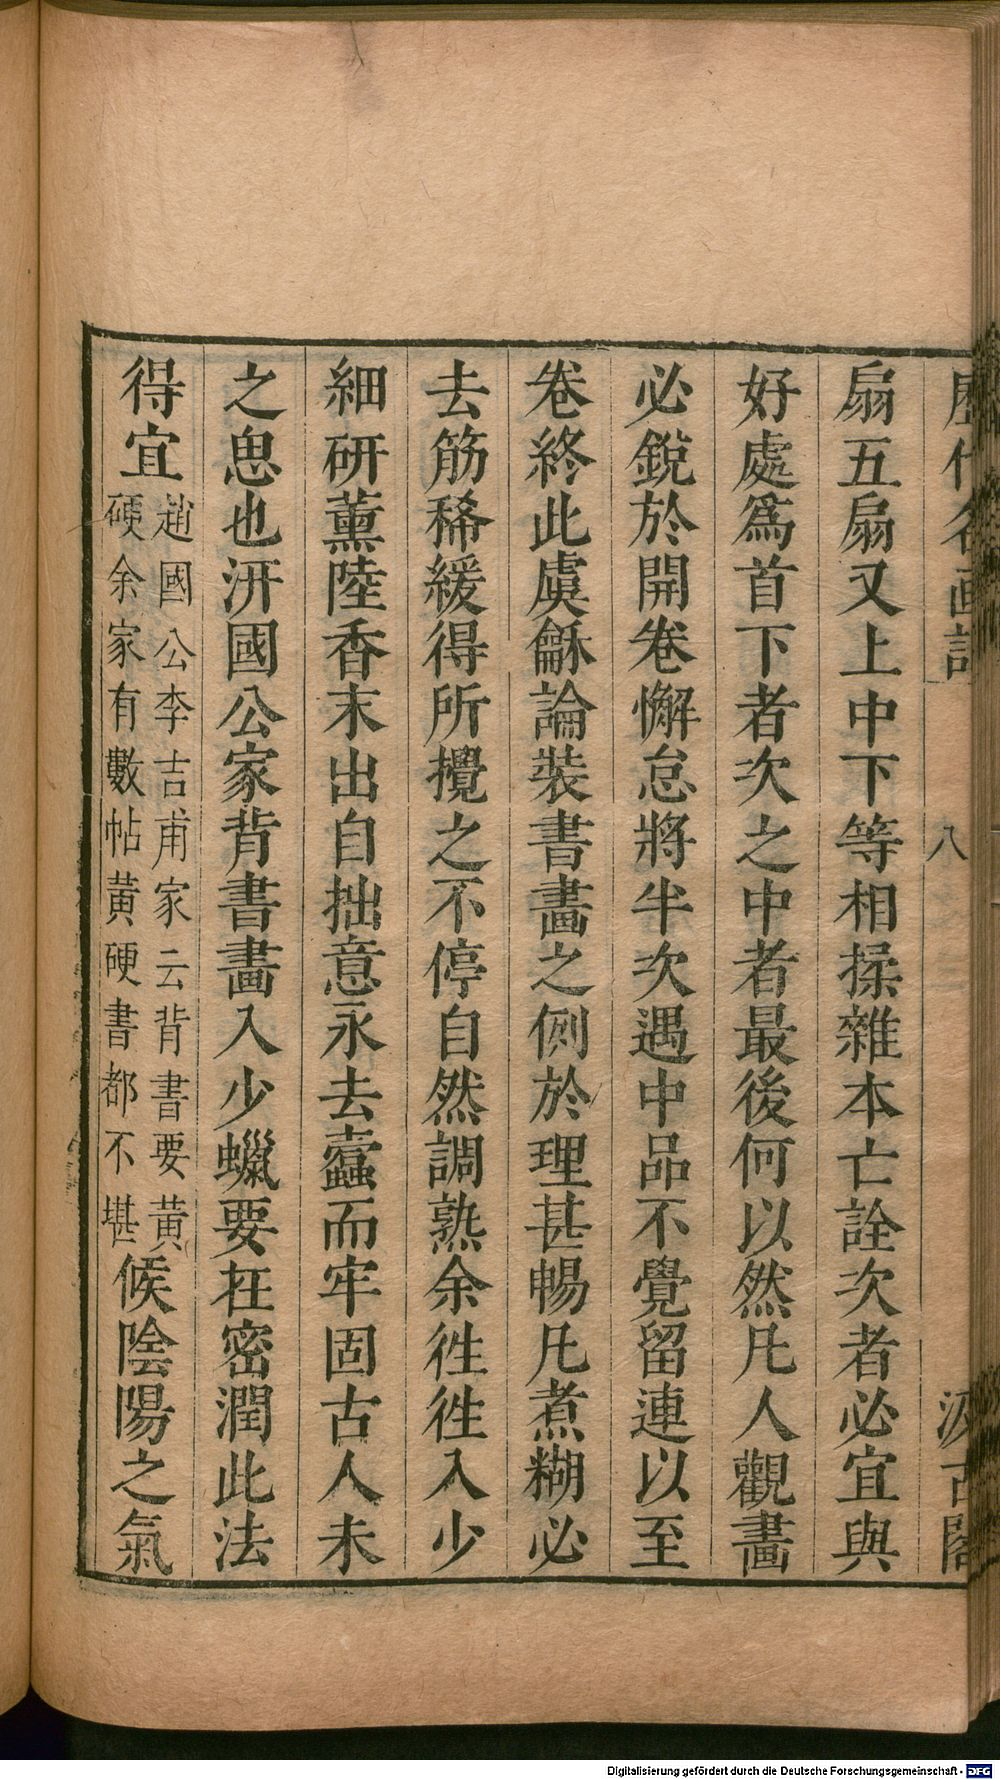 歷代名画記
八
汲古閣
扇五扇又上中下等相揉雜本亡詮次者必宜與
好處爲首下者次之中者最後何以然凡人觀畫
必銳於開卷懈怠將半次遇中品不覺留連以至
卷終此虞龢論裝書畫之例於理甚暢凡煮糊必
去筋稀緩得所攪之不停自然調熟余徃徃入少
細研薰陸香末出自拙意永去蠹而牢固古人未
之思也汧國公家背書畫入少蠟要在密潤此法
得宜
趙國公李吉甫家云背書要黃
硬余家有數帖黃硬書都不堪
候陰陽之氣
Digitalisierung gefördert durch die Deutsche Forschungsgemeinschaft - DFG